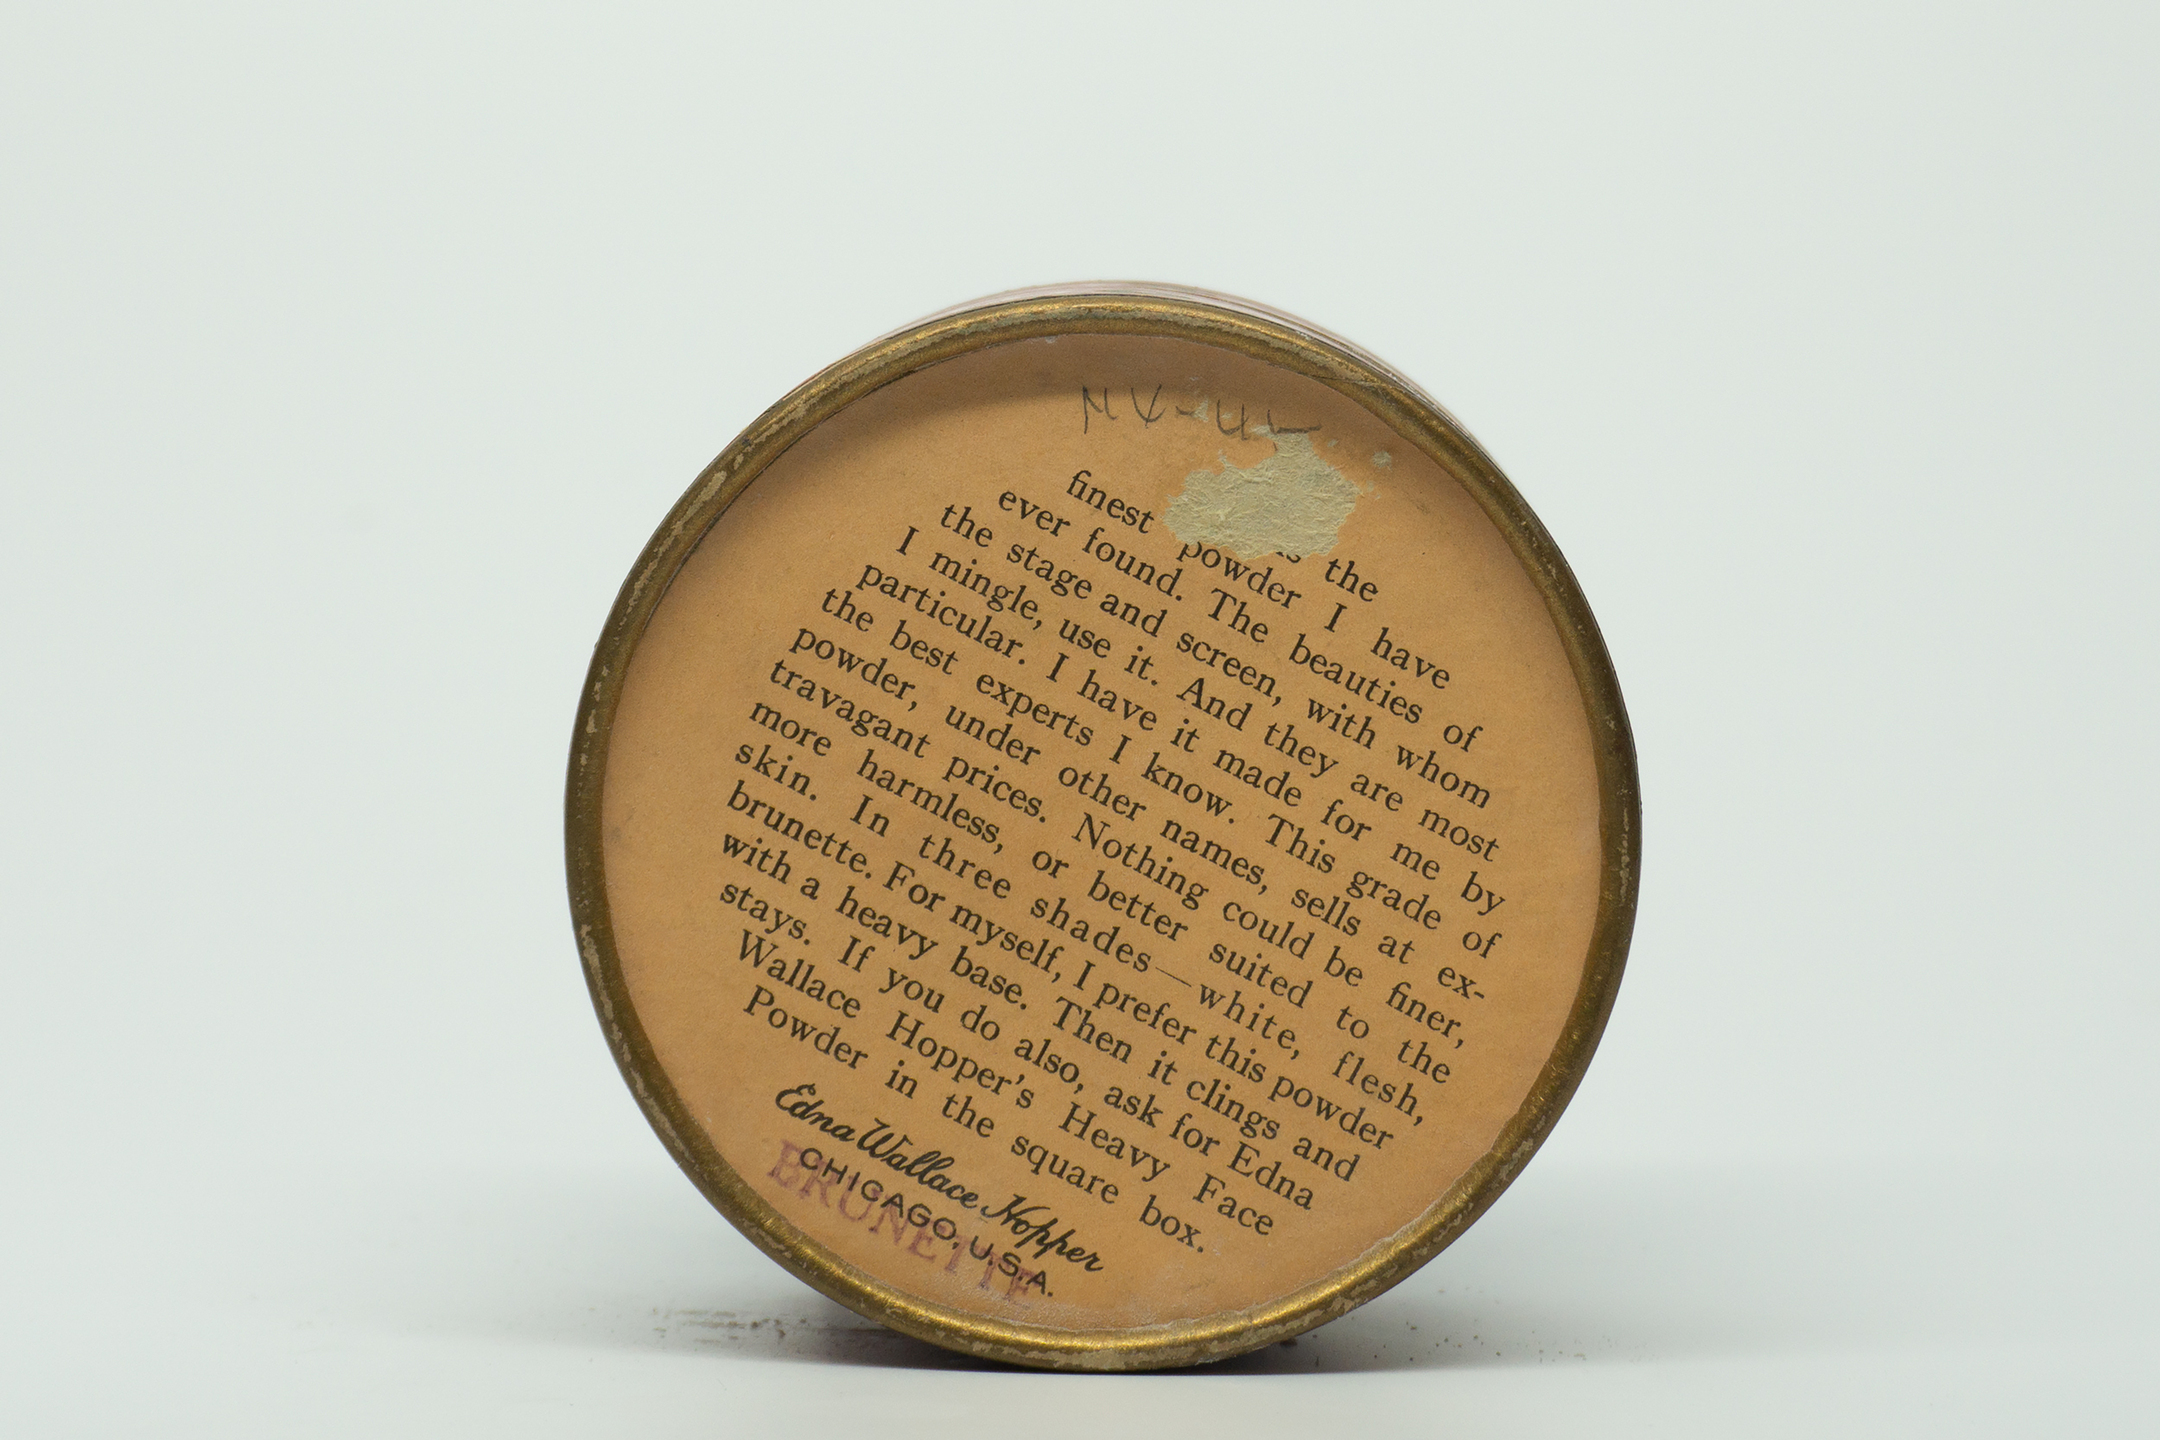 the
finest powder I have
ever found. The beauties of
the stage and screen, with whom
I mingle, use it. And they are most
particular. I have it made for me by
the best experts I know. This grade of
powder, under other names, sells at ex-
travagant prices. Nothing could be finer,
more harmless, or better suited to the
skin. In three shades—white, flesh,
brunette. For myself, I prefer this powder
with a heavy base. Then it clings and
stays. If you do also, ask for Edna
Wallace Hopper's Heavy Face
Powder in the square box.
Edna Wallace Hopper
CHICAGO, U.S.A.
BRUNETTE